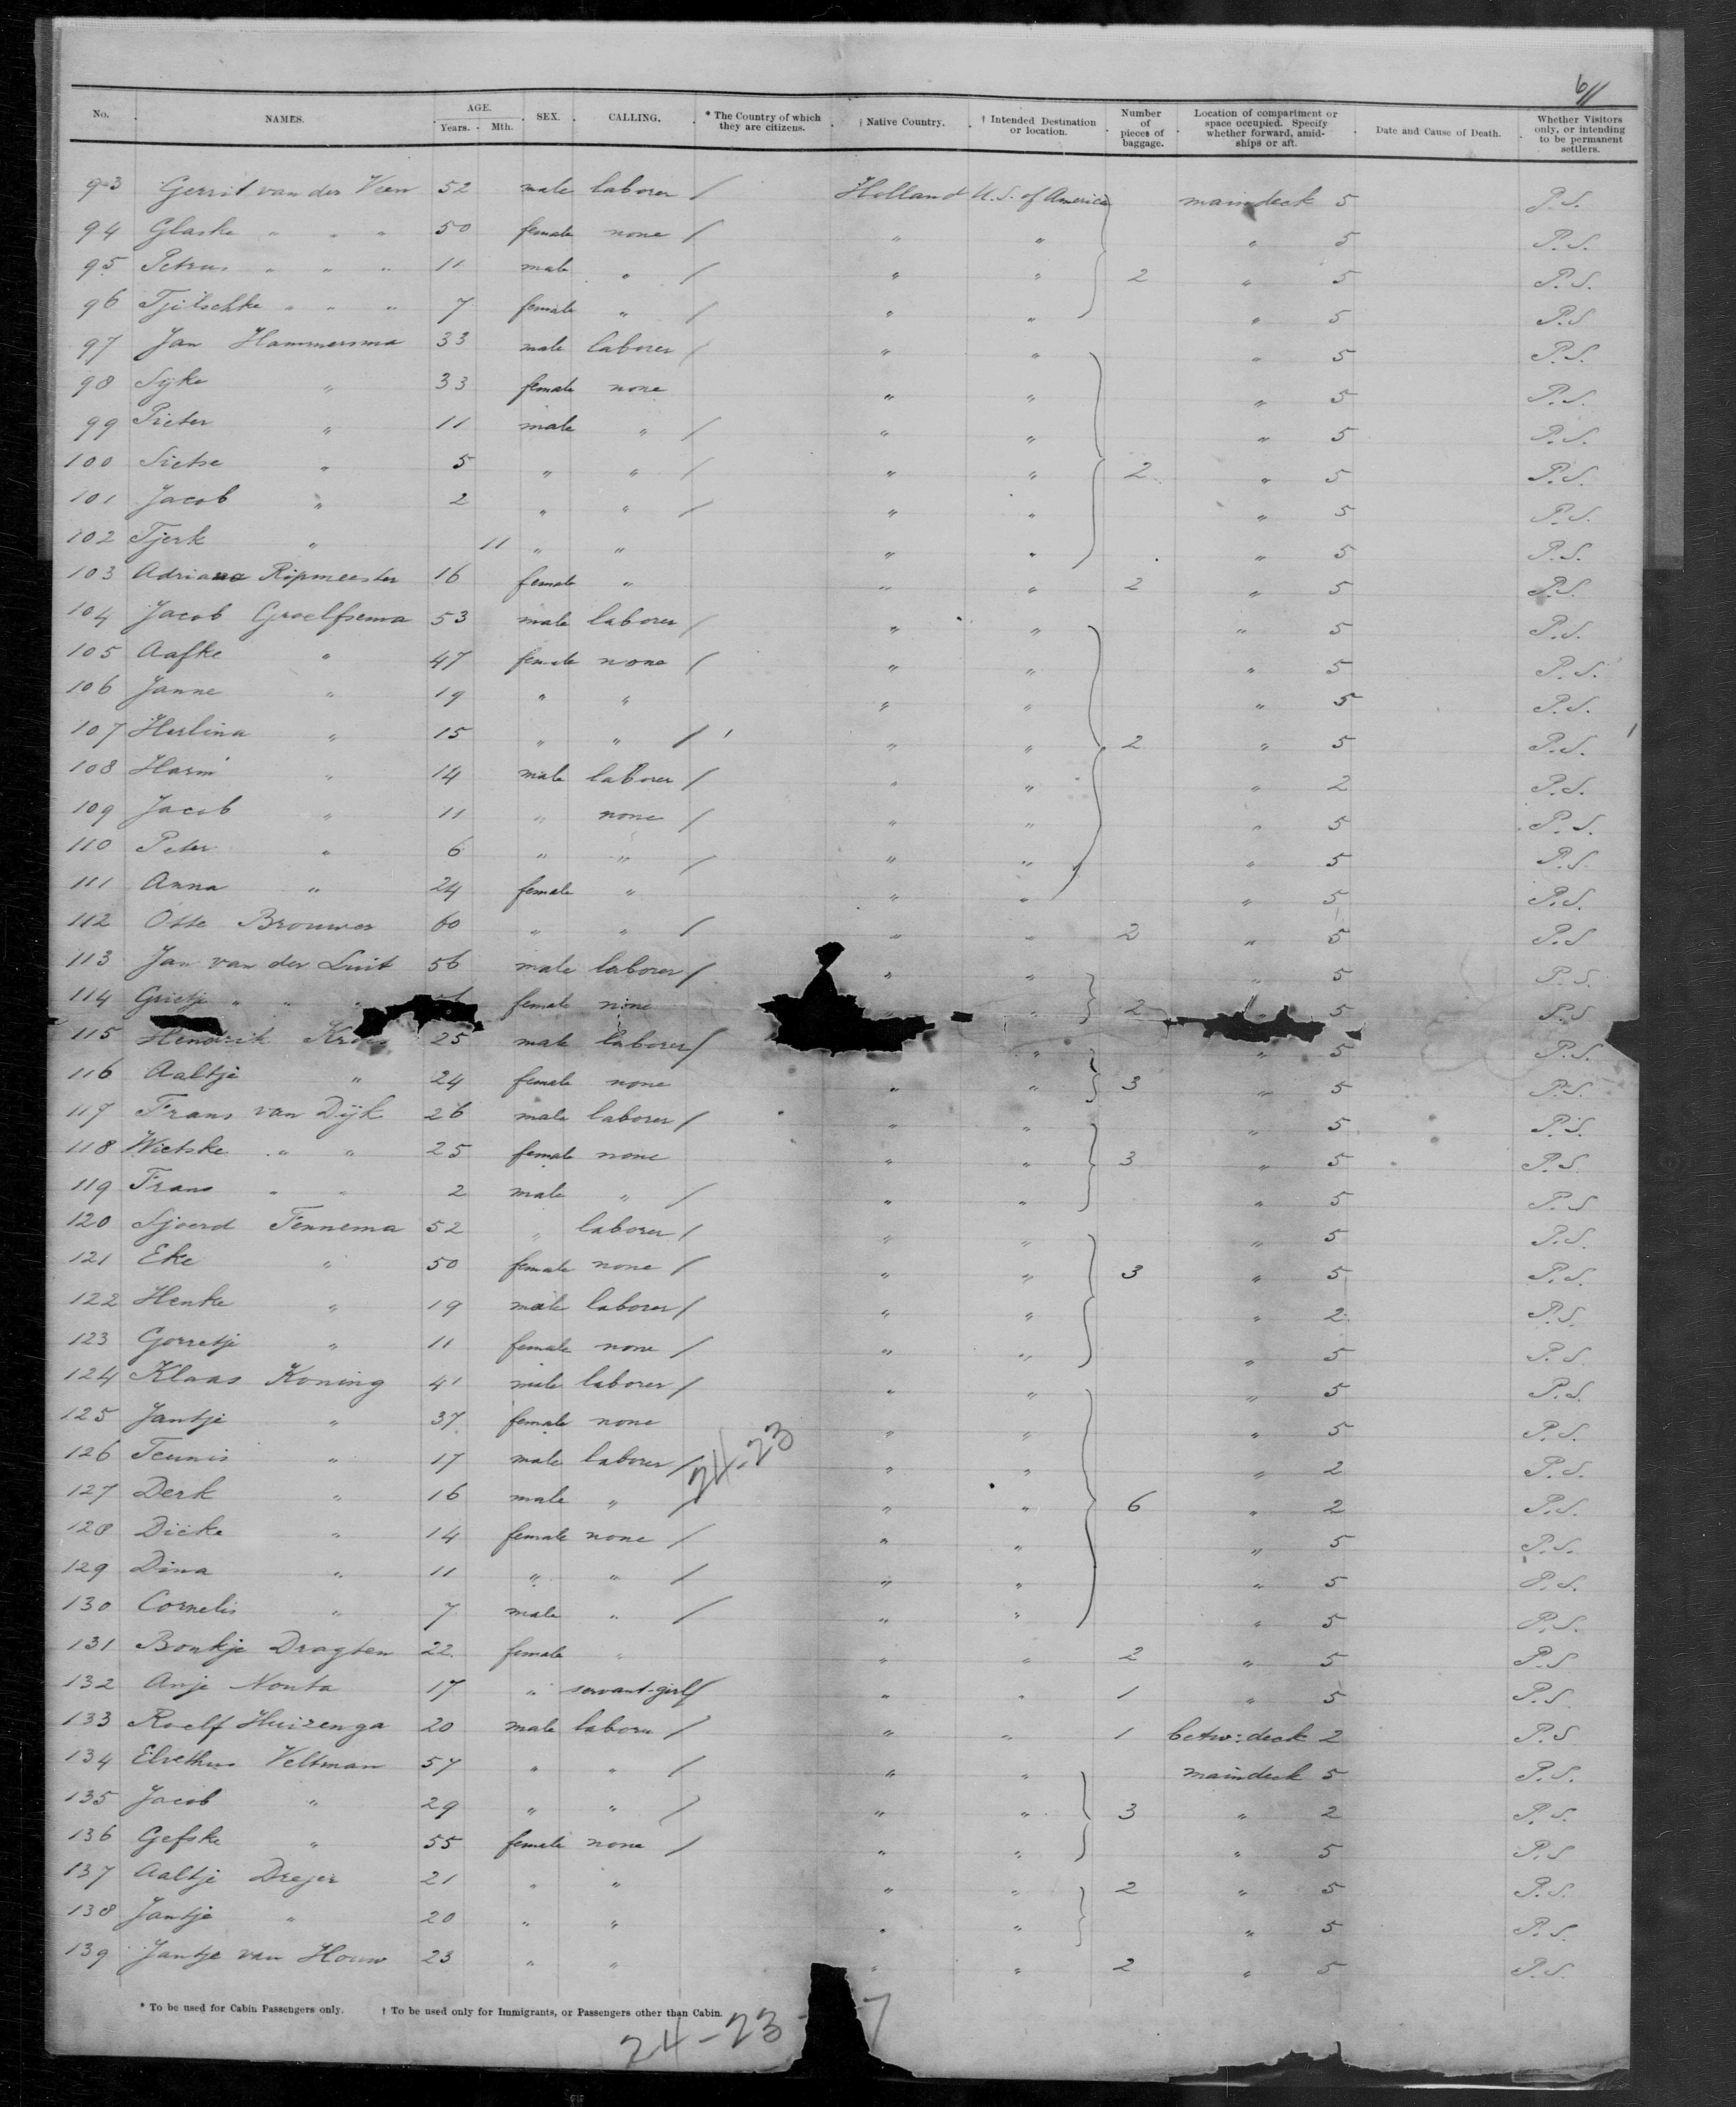 6
No. NAMES. AGE. Years. Mth. SEX. CALLING. * The Country of which they are citizens. † Native Country. † Intended Destination or location. Number of pieces of baggage. Location of compartment or space occupied. Specify whether forward, amidships or aft. Date and Cause of Death. Whether Visitors only, or intending to be permanent settlers.
93 Gerrit van der Veen 52 male laborer / Holland U.S. of America maindeck 5 P.S.
94 Glaske " " " 50 female none / " " " 5 P.S.
95 Petrus " " " 11 male " / " " 2 " 5 P.S.
96 Tjitschke " " " 7 female " / " " " 5 P.S.
97 Jan Hammersma 33 male laborer / " " " 5 P.S.
98 Sijke " 33 female none " " " 5 P.S.
99 Pieter " 11 male " / " " " 5 P.S.
100 Sietse " 5 " " / " " 2 " 5 P.S.
101 Jacob " 2 " " / " " " 5 P.S.
102 Tjerk " 11 " " " " " 5 P.S.
103 Adriana Ripmeester 16 female " " " 2 " 5 P.S.
104 Jacob Groelfsema 53 male laborer / " " " 5 P.S.
105 Aafke " 47 female none / " " " 5 P.S.
106 Janne " 19 " " " " " 5 P.S.
107 Herlina " 15 " " / " " 2 " 5 P.S.
108 Harm " 14 male laborer / " " " 2 P.S.
109 Jacob " 11 " none / " " " 5 P.S.
110 Peter " 6 " " / " " " 5 P.S.
111 Anna " 24 female " " " " 5 P.S.
112 Otte Brouwer 60 " " / " " 2 " 5 P.S.
113 Jan van der Luit 56 male laborer / " " " 5 P.S.
114 Grietje " " " female none " " 2 5 P.S.
115 Hendrik 25 male laborer / " " 5 P.S.
116 Aaltje " 24 female none " " 3 " 5 P.S.
117 Frans van Dijk 26 male laborer / " " " 5 P.S.
118 Wietske " " 25 female none " " 3 " 5 P.S.
119 Frans " " 2 male " / " " " 5 P.S.
120 Sjoerd Tennema 52 " laborer / " " " 5 P.S.
121 Eke " 50 female none / " " 3 " 5 P.S.
122 Henke " 19 male laborer / " " " 2 P.S.
123 Gorretje " 11 female none / " " " 5 P.S.
124 Klaas Koning 41 male laborer / " " " 5 P.S.
125 Jantje " 37 female none " " " 5 P.S.
126 Teunis " 17 male laborer / 24-23 " " " 2 P.S.
127 Derk " 16 male " / " " 6 " 2 P.S.
128 Dieke " 14 female none / " " " 5 P.S.
129 Dina " 11 " " / " " " 5 P.S.
130 Cornelis " 7 male " / " " " 5 P.S.
131 Bonkje Dragten 22 female " " " 2 " 5 P.S.
132 Anje Nonta 17 " servant-girl / " " 1 " 5 P.S.
133 Roelf Huizenga 20 male laborer / " " 1 betw: deck 2 P.S.
134 Veltman 57 " " / " " maindeck 5 P.S.
135 Jacob " 29 " " / " " 3 " 2 P.S.
136 Gefske " 55 female none / " " " 5 P.S.
137 Aaltje Drejer 21 " " " " 2 " 5 P.S.
138 Jantje " 20 " " " " " 5 P.S.
139 Jantje van Houw 23 " " " " 2 " 5 P.S.
* To be used for Cabin Passengers only. † To be used only for Immigrants, or Passengers other than Cabin.
24-23 7